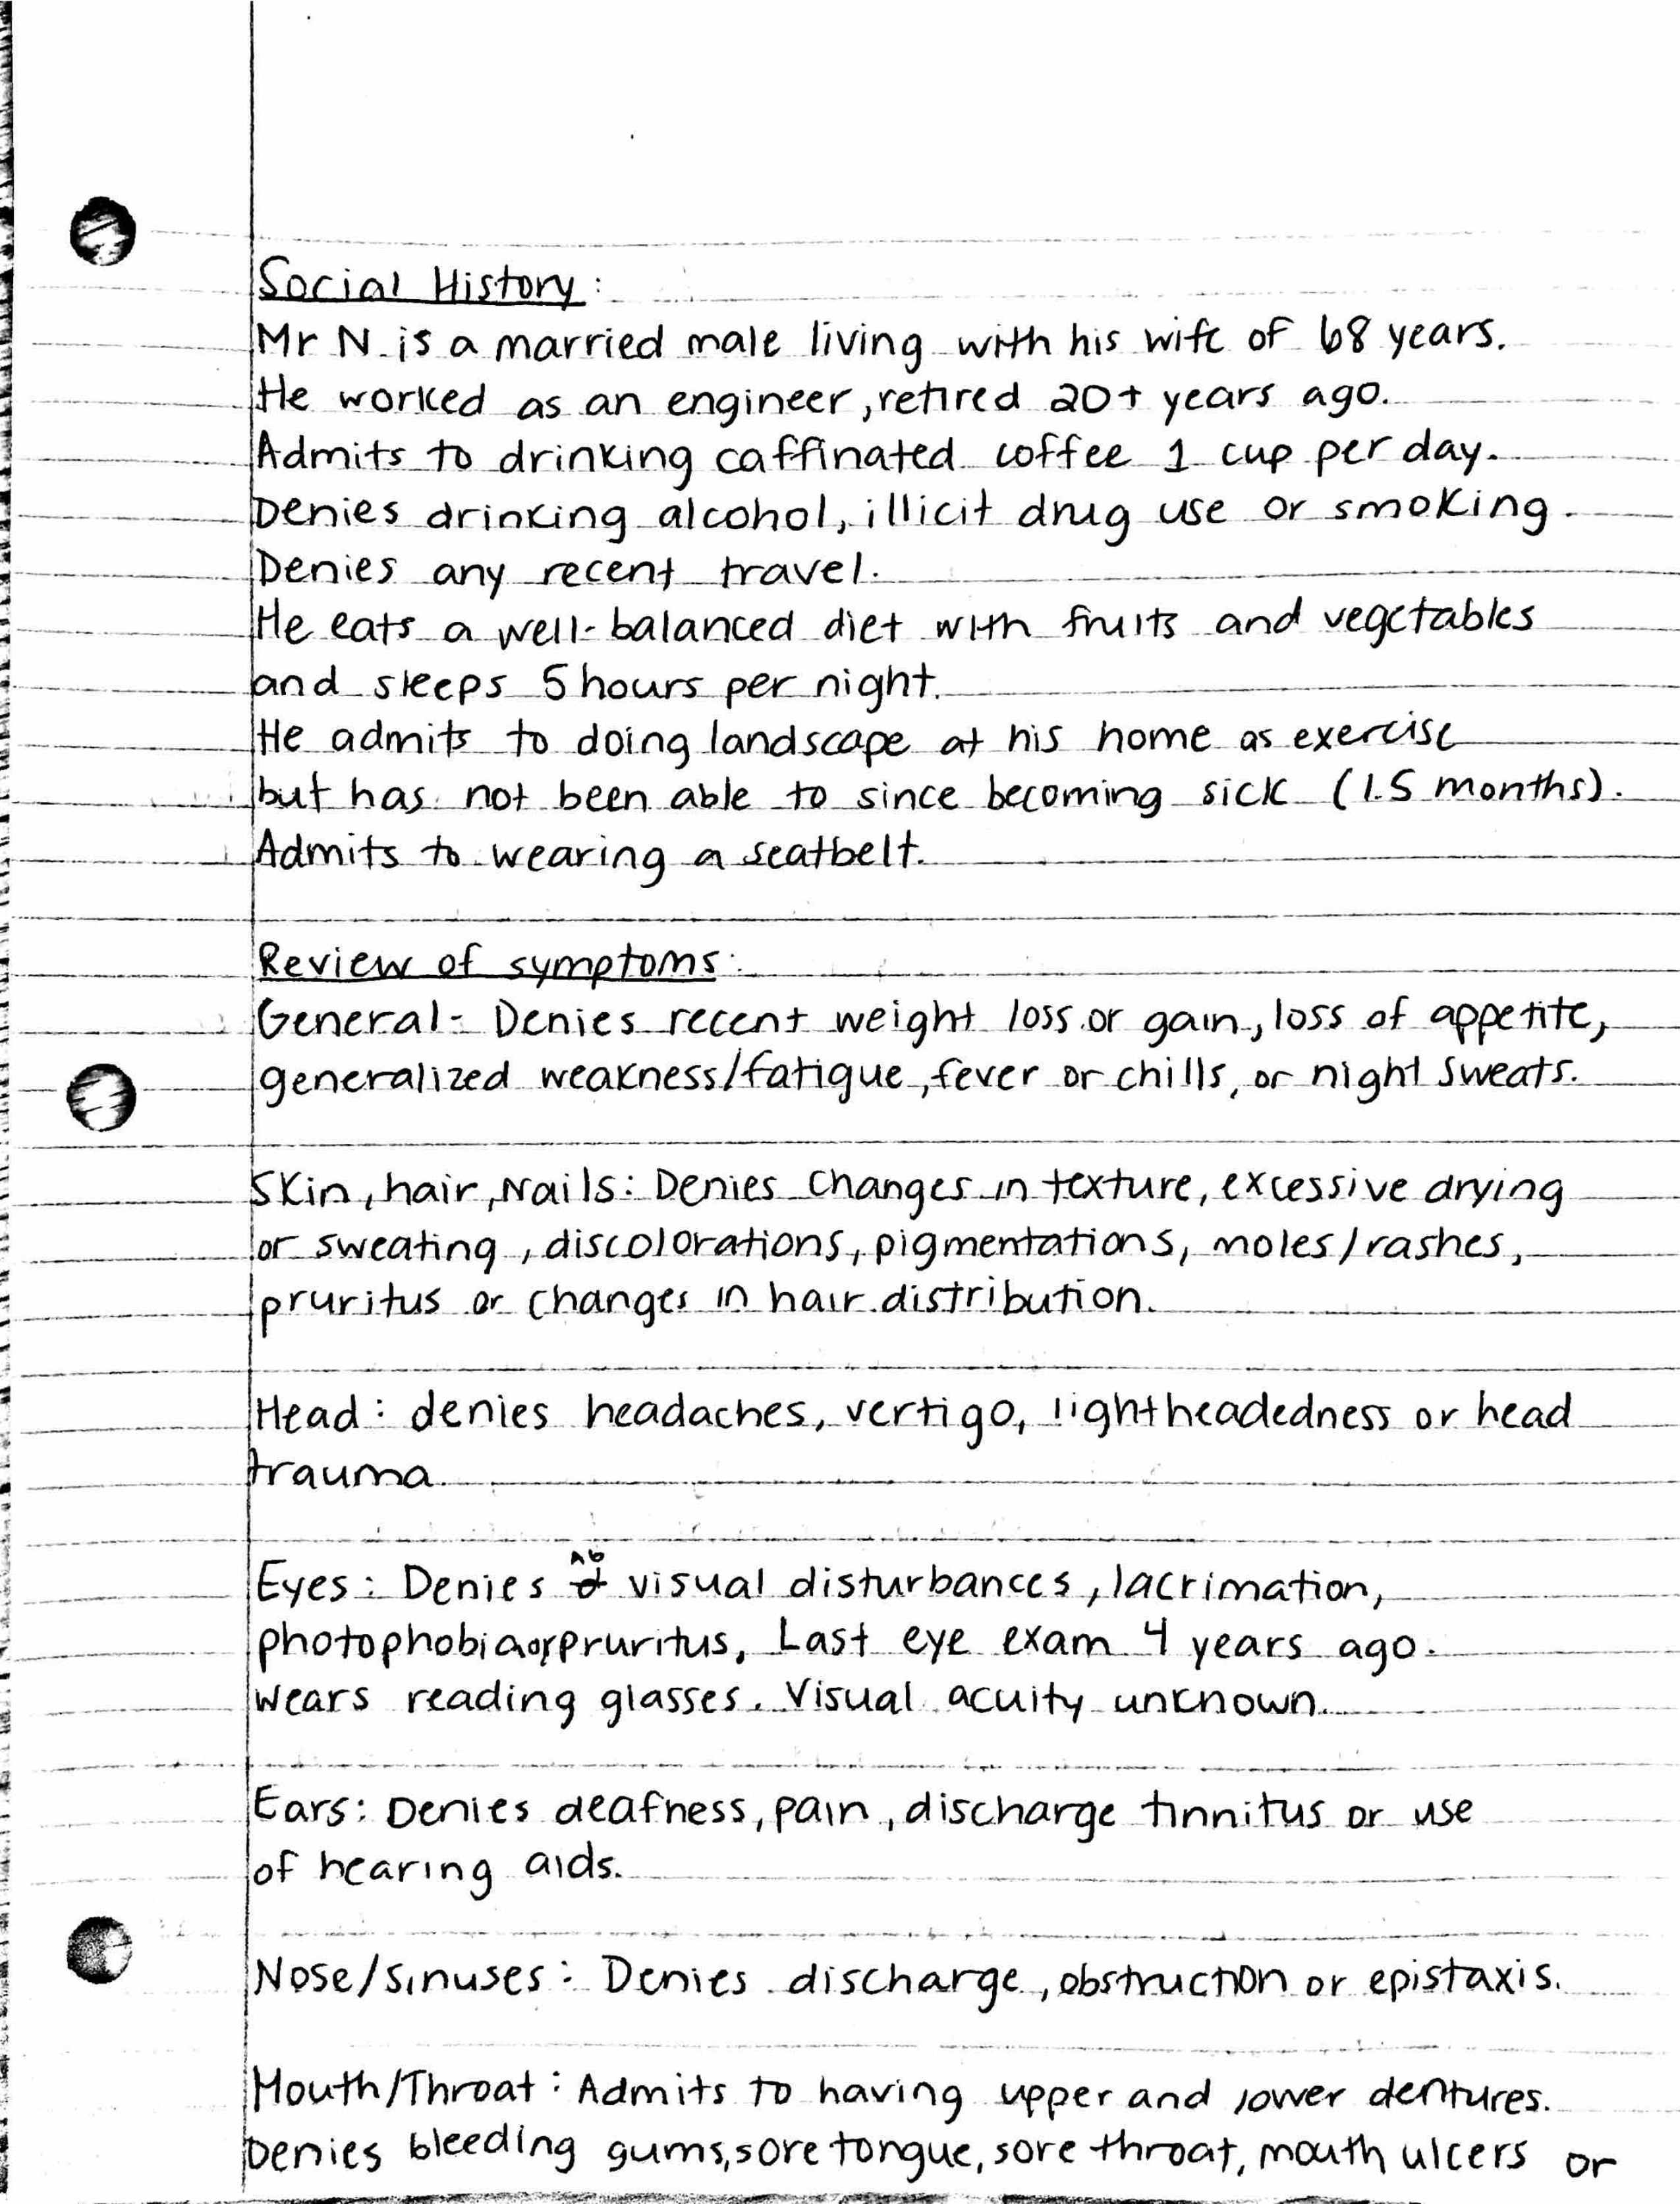 Social History:
Mr N. is a married male living with his wife of 68 years.
He worked as an engineer, retired 20+ years ago.
Admits to drinking caffinated coffee 1 cup per day.
Denies drinking alcohol, illicit drug use or smoking.
Denies any recent travel.
He eats a well-balanced diet with fruits and vegetables
and sleeps 5 hours per night.
He admits to doing landscape at his home as exercise
but has not been able to since becoming sick (1.5 months).
Admits to wearing a seatbelt.
Review of symptoms:
General- Denies recent weight loss or gain, loss of appetite,
generalized weakness/fatigue, fever or chills, or night sweats.
Skin, hair, Nails: Denies changes in texture, excessive drying
or sweating, discolorations, pigmentations, moles/rashes,
pruritus or changes in hair distribution.
Head: denies headaches, vertigo, lightheadedness or head
trauma.
Eyes: Denies visual disturbances, lacrimation,
photophobia or pruritus, Last eye exam 4 years ago.
Wears reading glasses. Visual acuity unknown.
Ears: Denies deafness, pain, discharge tinnitus or use
of hearing aids.
Nose/sinuses: Denies discharge, obstruction or epistaxis.
Mouth/Throat: Admits to having upper and lower dentures.
Denies bleeding gums, sore tongue, sore throat, mouth ulcers or